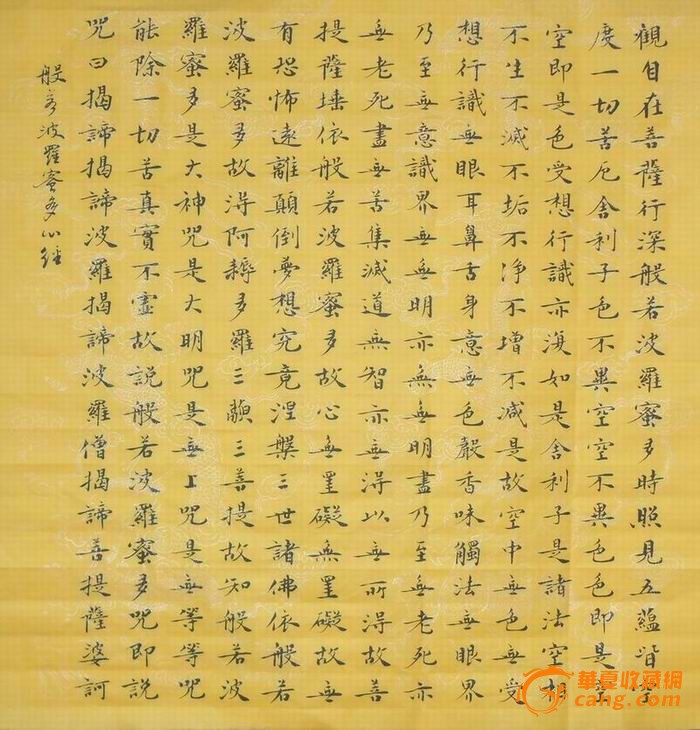 觀自在菩薩行深般若波羅蜜多時照見五蘊皆空
度一切苦厄舍利子色不異空空不異色色即是空
空即是色受想行識亦復如是舍利子是諸法空相
不生不滅不垢不淨不增不減是故空中無色無受
想行識無眼耳鼻舌身意無色聲香味觸法無眼界
乃至無意識界無無明亦無無明盡乃至無老死亦
無老死盡無苦集滅道無智亦無得以無所得故菩
提薩埵依般若波羅蜜多故心無罣礙無罣礙故無
有恐怖遠離顛倒夢想究竟涅槃三世諸佛依般若
波羅蜜多故得阿耨多羅三藐三菩提故知般若波
羅蜜多是大神咒是大明咒是無上咒是無等等咒
能除一切苦真實不虛故說般若波羅蜜多咒即說
咒曰揭諦揭諦波羅揭諦波羅僧揭諦菩提薩婆訶
般若波羅蜜多心經
華夏收藏網
cang.com